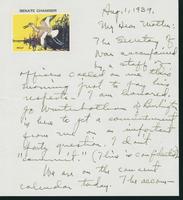 SENATE CHAMBER
Aug. 1, 1939.
My Dear Mother:
The Secretary of
was accompanied
by a staff of
officers called on me this
morning just to pay his
respects. I am
of Burlington
is here to get a commitment
from me on an important
party question. I don't
"commit". (This is confidential)
We are on the
calendar today. The